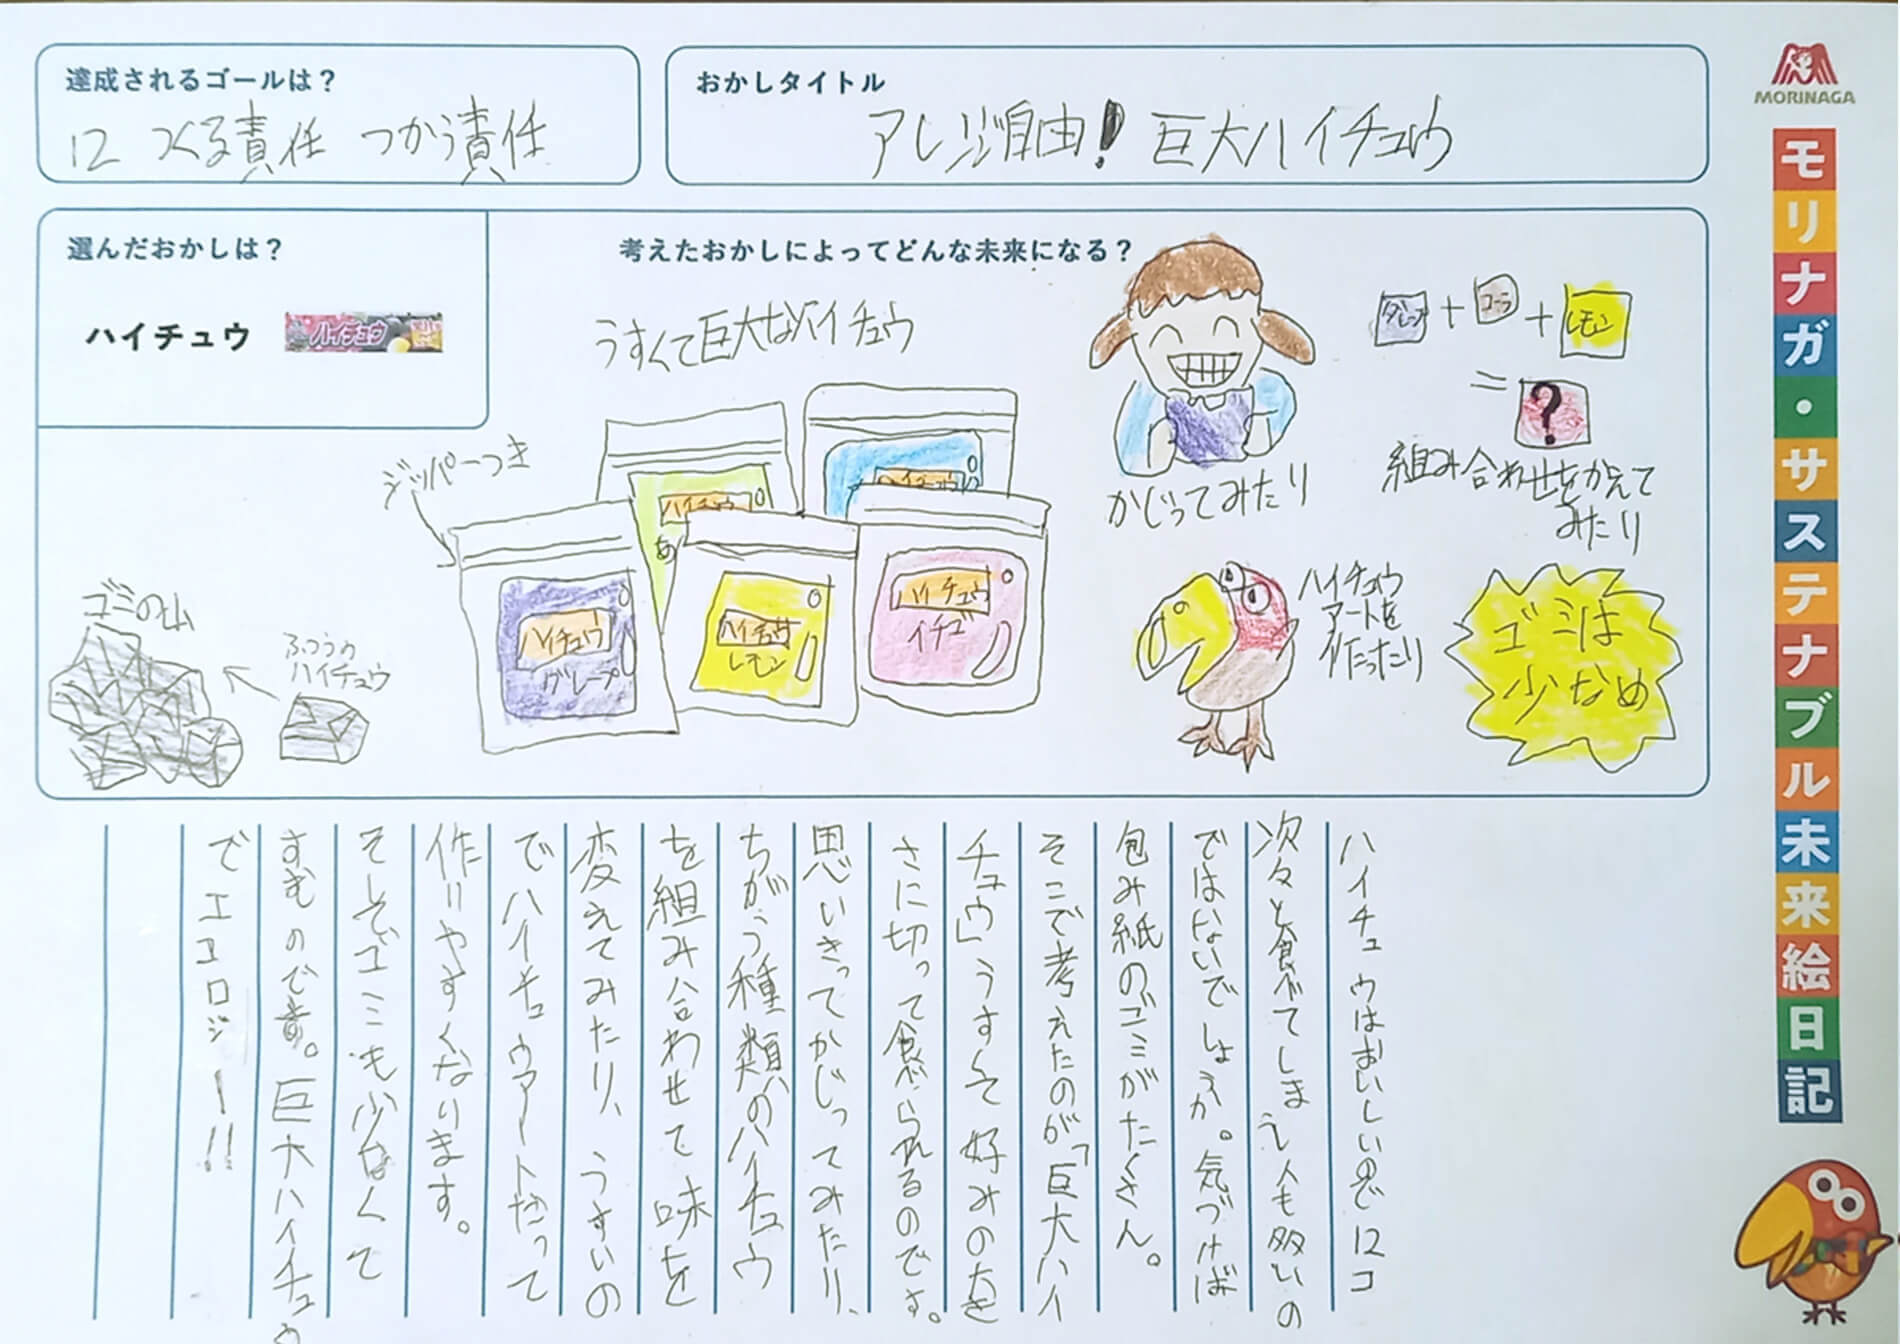 達成されるゴールは？
12 つくる責任 つかう責任
おかしタイトル
アレンジ自由！ 巨大ハイチュウ
MORINAGA
モリナガ・サステナブル未来絵日記
選んだおかしは？
ハイチュウ
ハイチュウ
考えたおかしによってどんな未来になる？
うすくて巨大なハイチュウ
ジッパーつき
ハイチュウ
ハイチュウ
ハイチュウ
グレープ
ハイチュウ
レモン
ハイチュウ
イチゴ
ゴミの山
ふつうの
ハイチュウ
かじってみたり
グレープ + コーラ + レモン
= ?
組み合わせをかえて
みたり
ハイチュウ
アートを
作ったり
ゴミは
少なめ
ハイチュウはおいしいので12コ
次々と食べてしまう人も多いの
ではないでしょうか。気づけば
包み紙のゴミがたくさん。
そこで考えたのが「巨大ハイ
チュウ」うすくて好みの大き
さに切って食べられるのです。
思いきってかじってみたり、
ちがう種類のハイチュウ
を組み合わせて味を
変えてみたり、うすいの
でハイチュウアートだって
作りやすくなります。
そしてゴミも少なくて
すむのです。巨大ハイチュウ
でエコロジー!!